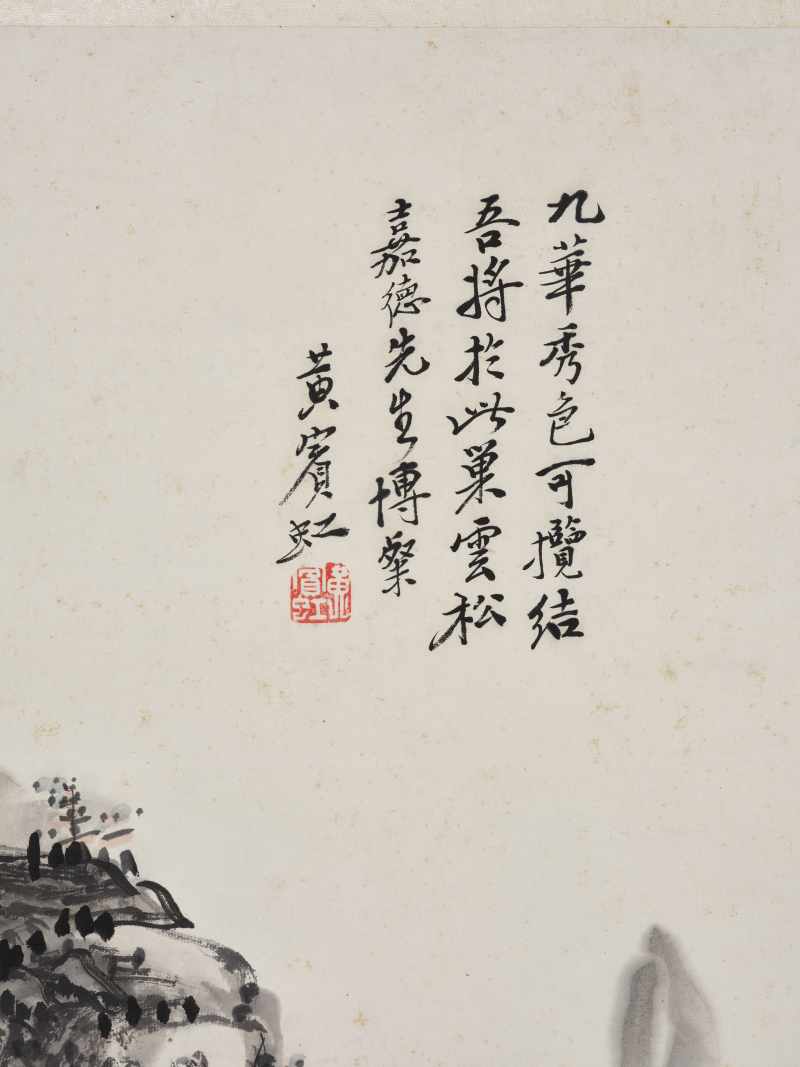 九華秀色可攬結
吾將於此巢雲松
嘉德先生博粲
黃賓虹
黃賓虹